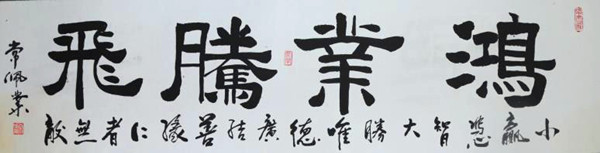 鴻業騰飛
小贏憑智大勝唯德廣結善緣仁者無敵
常佩業